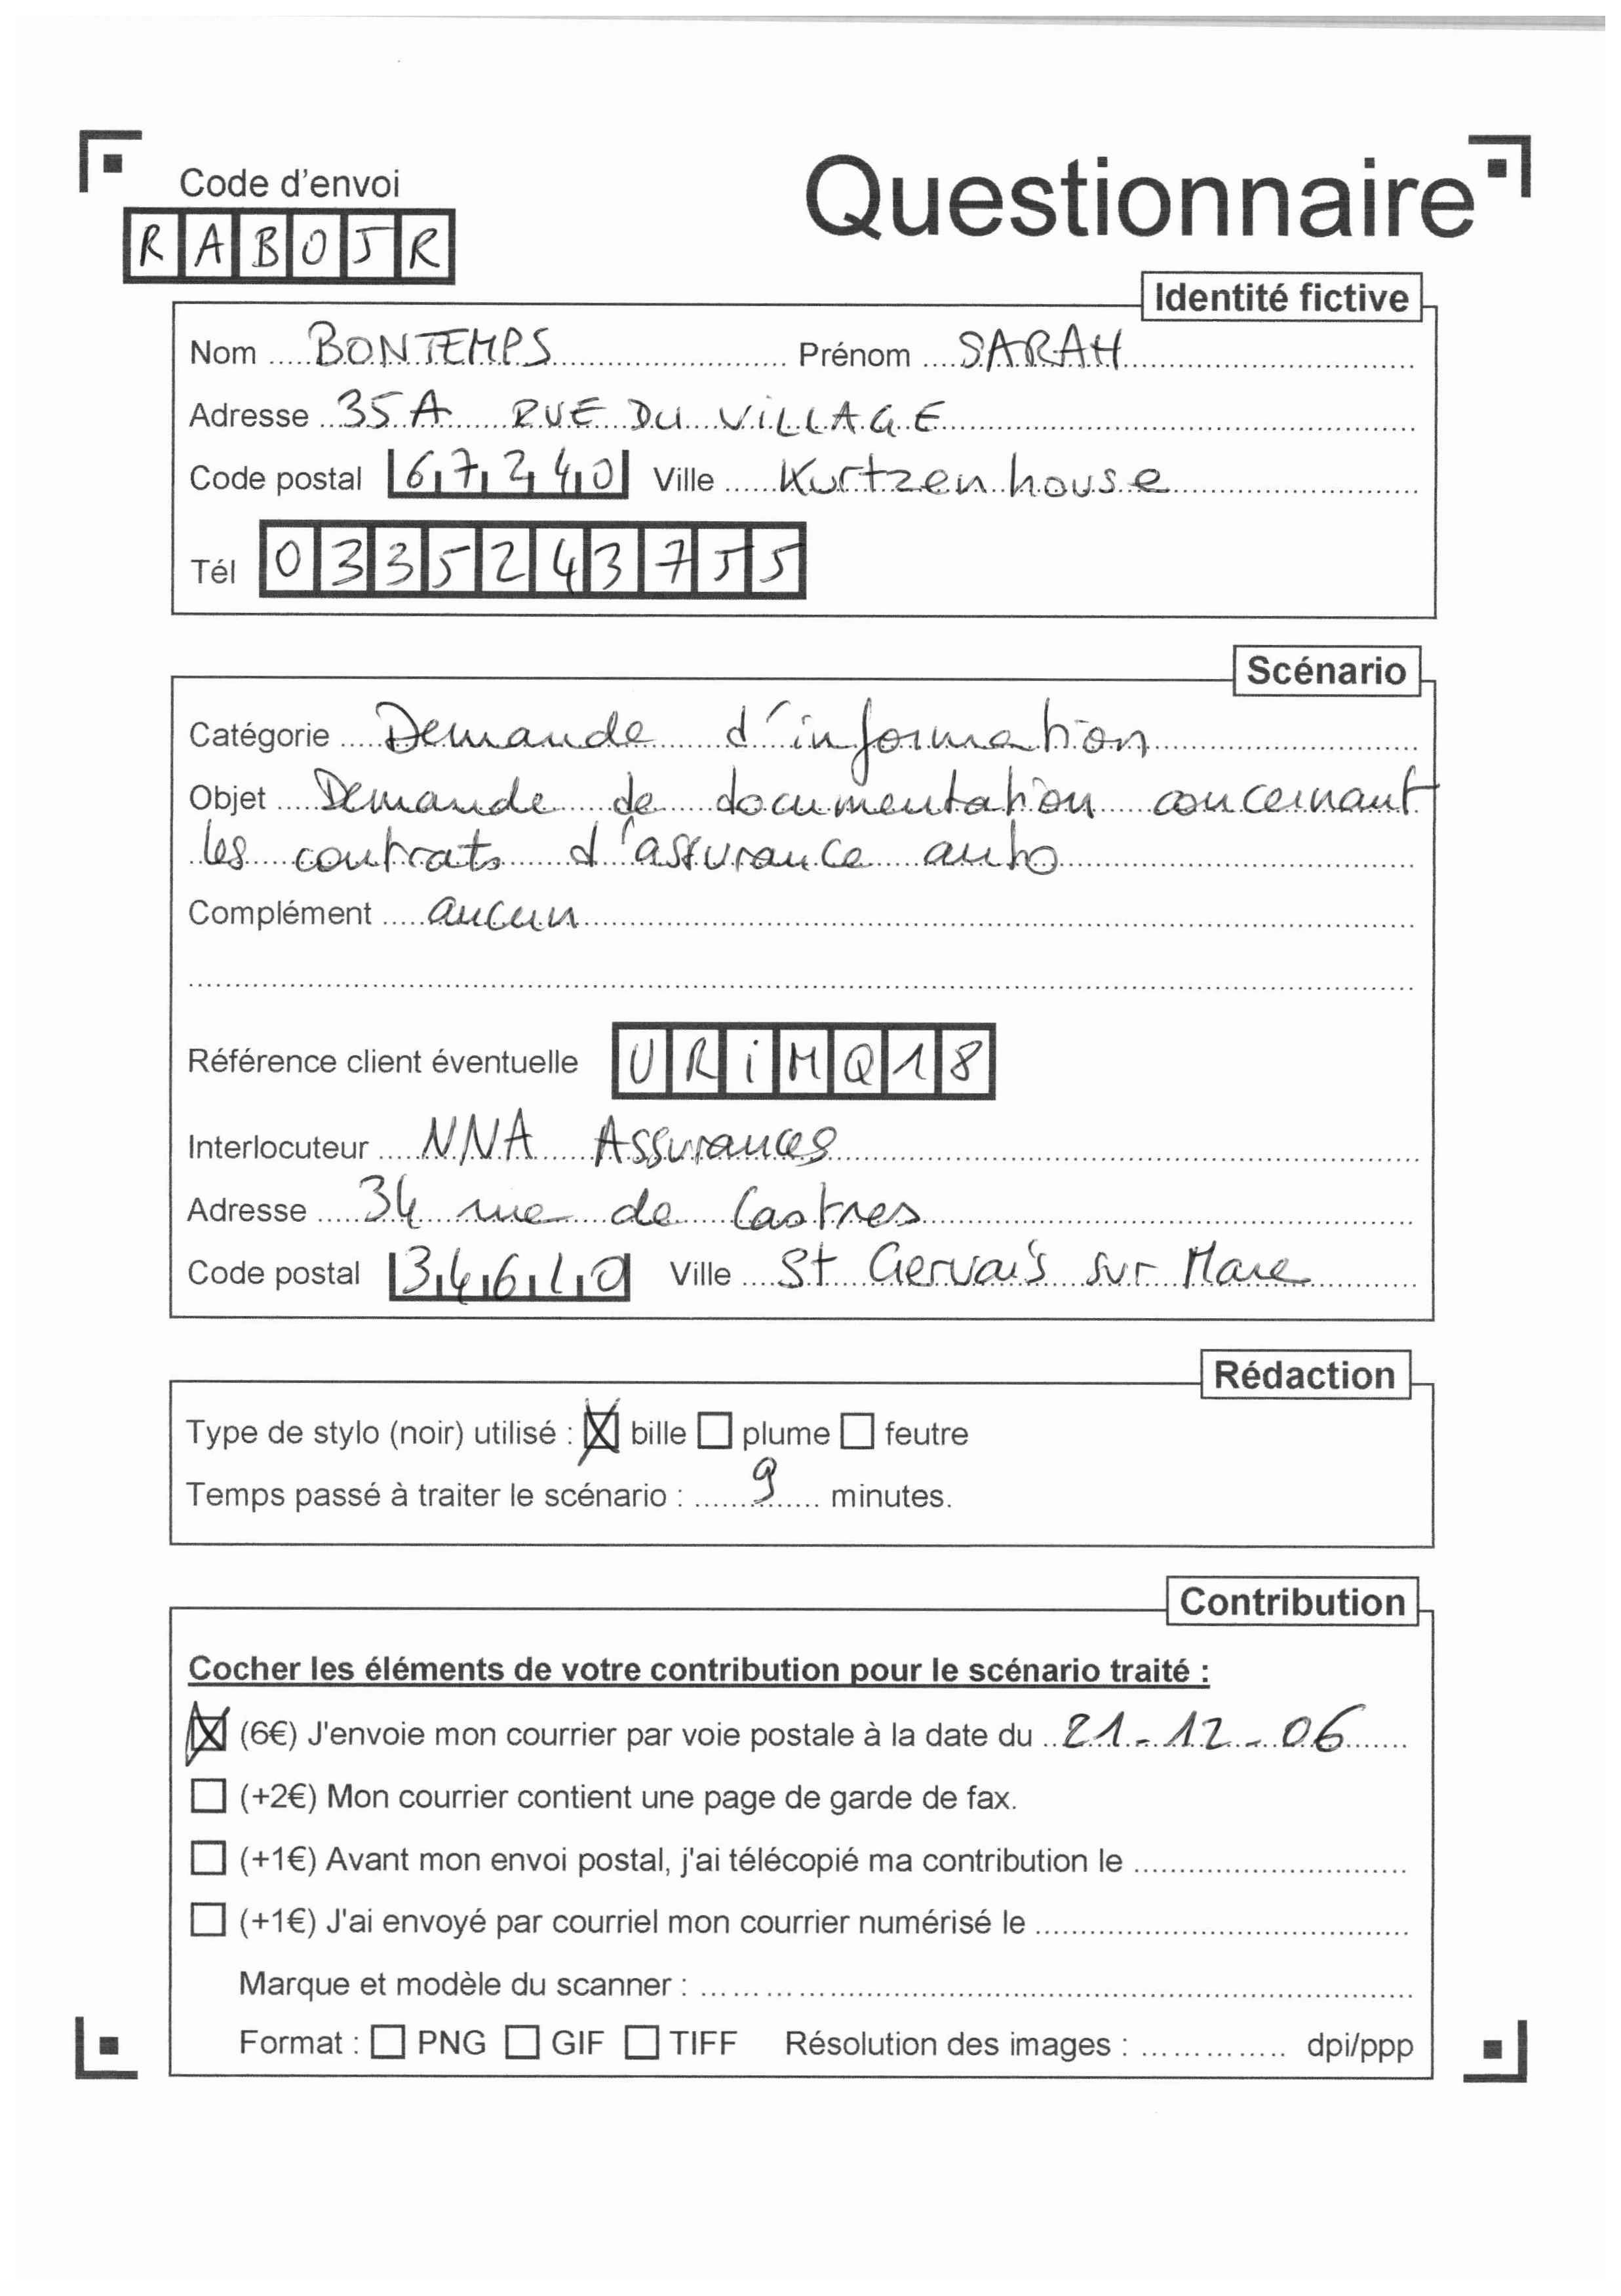 Code d'envoi
Questionnaire
RABO5R
Identité fictive
Nom BONTEMPS Prénom SARAH
Adresse 35A RUE DU VILLAGE
Code postal 67240 Ville Kurtzenhouse
Tél 0335243755
Scénario
Catégorie Demande d'information
Objet Demande de documentation concernant
les contrats d'assurance auto
Complément aucun
Référence client éventuelle URiMQ18
Interlocuteur NNA Assurances
Adresse 34 rue de Castres
Code postal 34610 Ville St Gervais sur Mare
Rédaction
Type de stylo (noir) utilisé : bille plume feutre
Temps passé à traiter le scénario : 9 minutes.
Contribution
Cocher les éléments de votre contribution pour le scénario traité :
(6€) J'envoie mon courrier par voie postale à la date du 21-12-06
(+2€) Mon courrier contient une page de garde de fax.
(+1€) Avant mon envoi postal, j'ai télécopié ma contribution le
(+1€) J'ai envoyé par courriel mon courrier numérisé le
Marque et modèle du scanner :
Format : PNG GIF TIFF Résolution des images : dpi/ppp